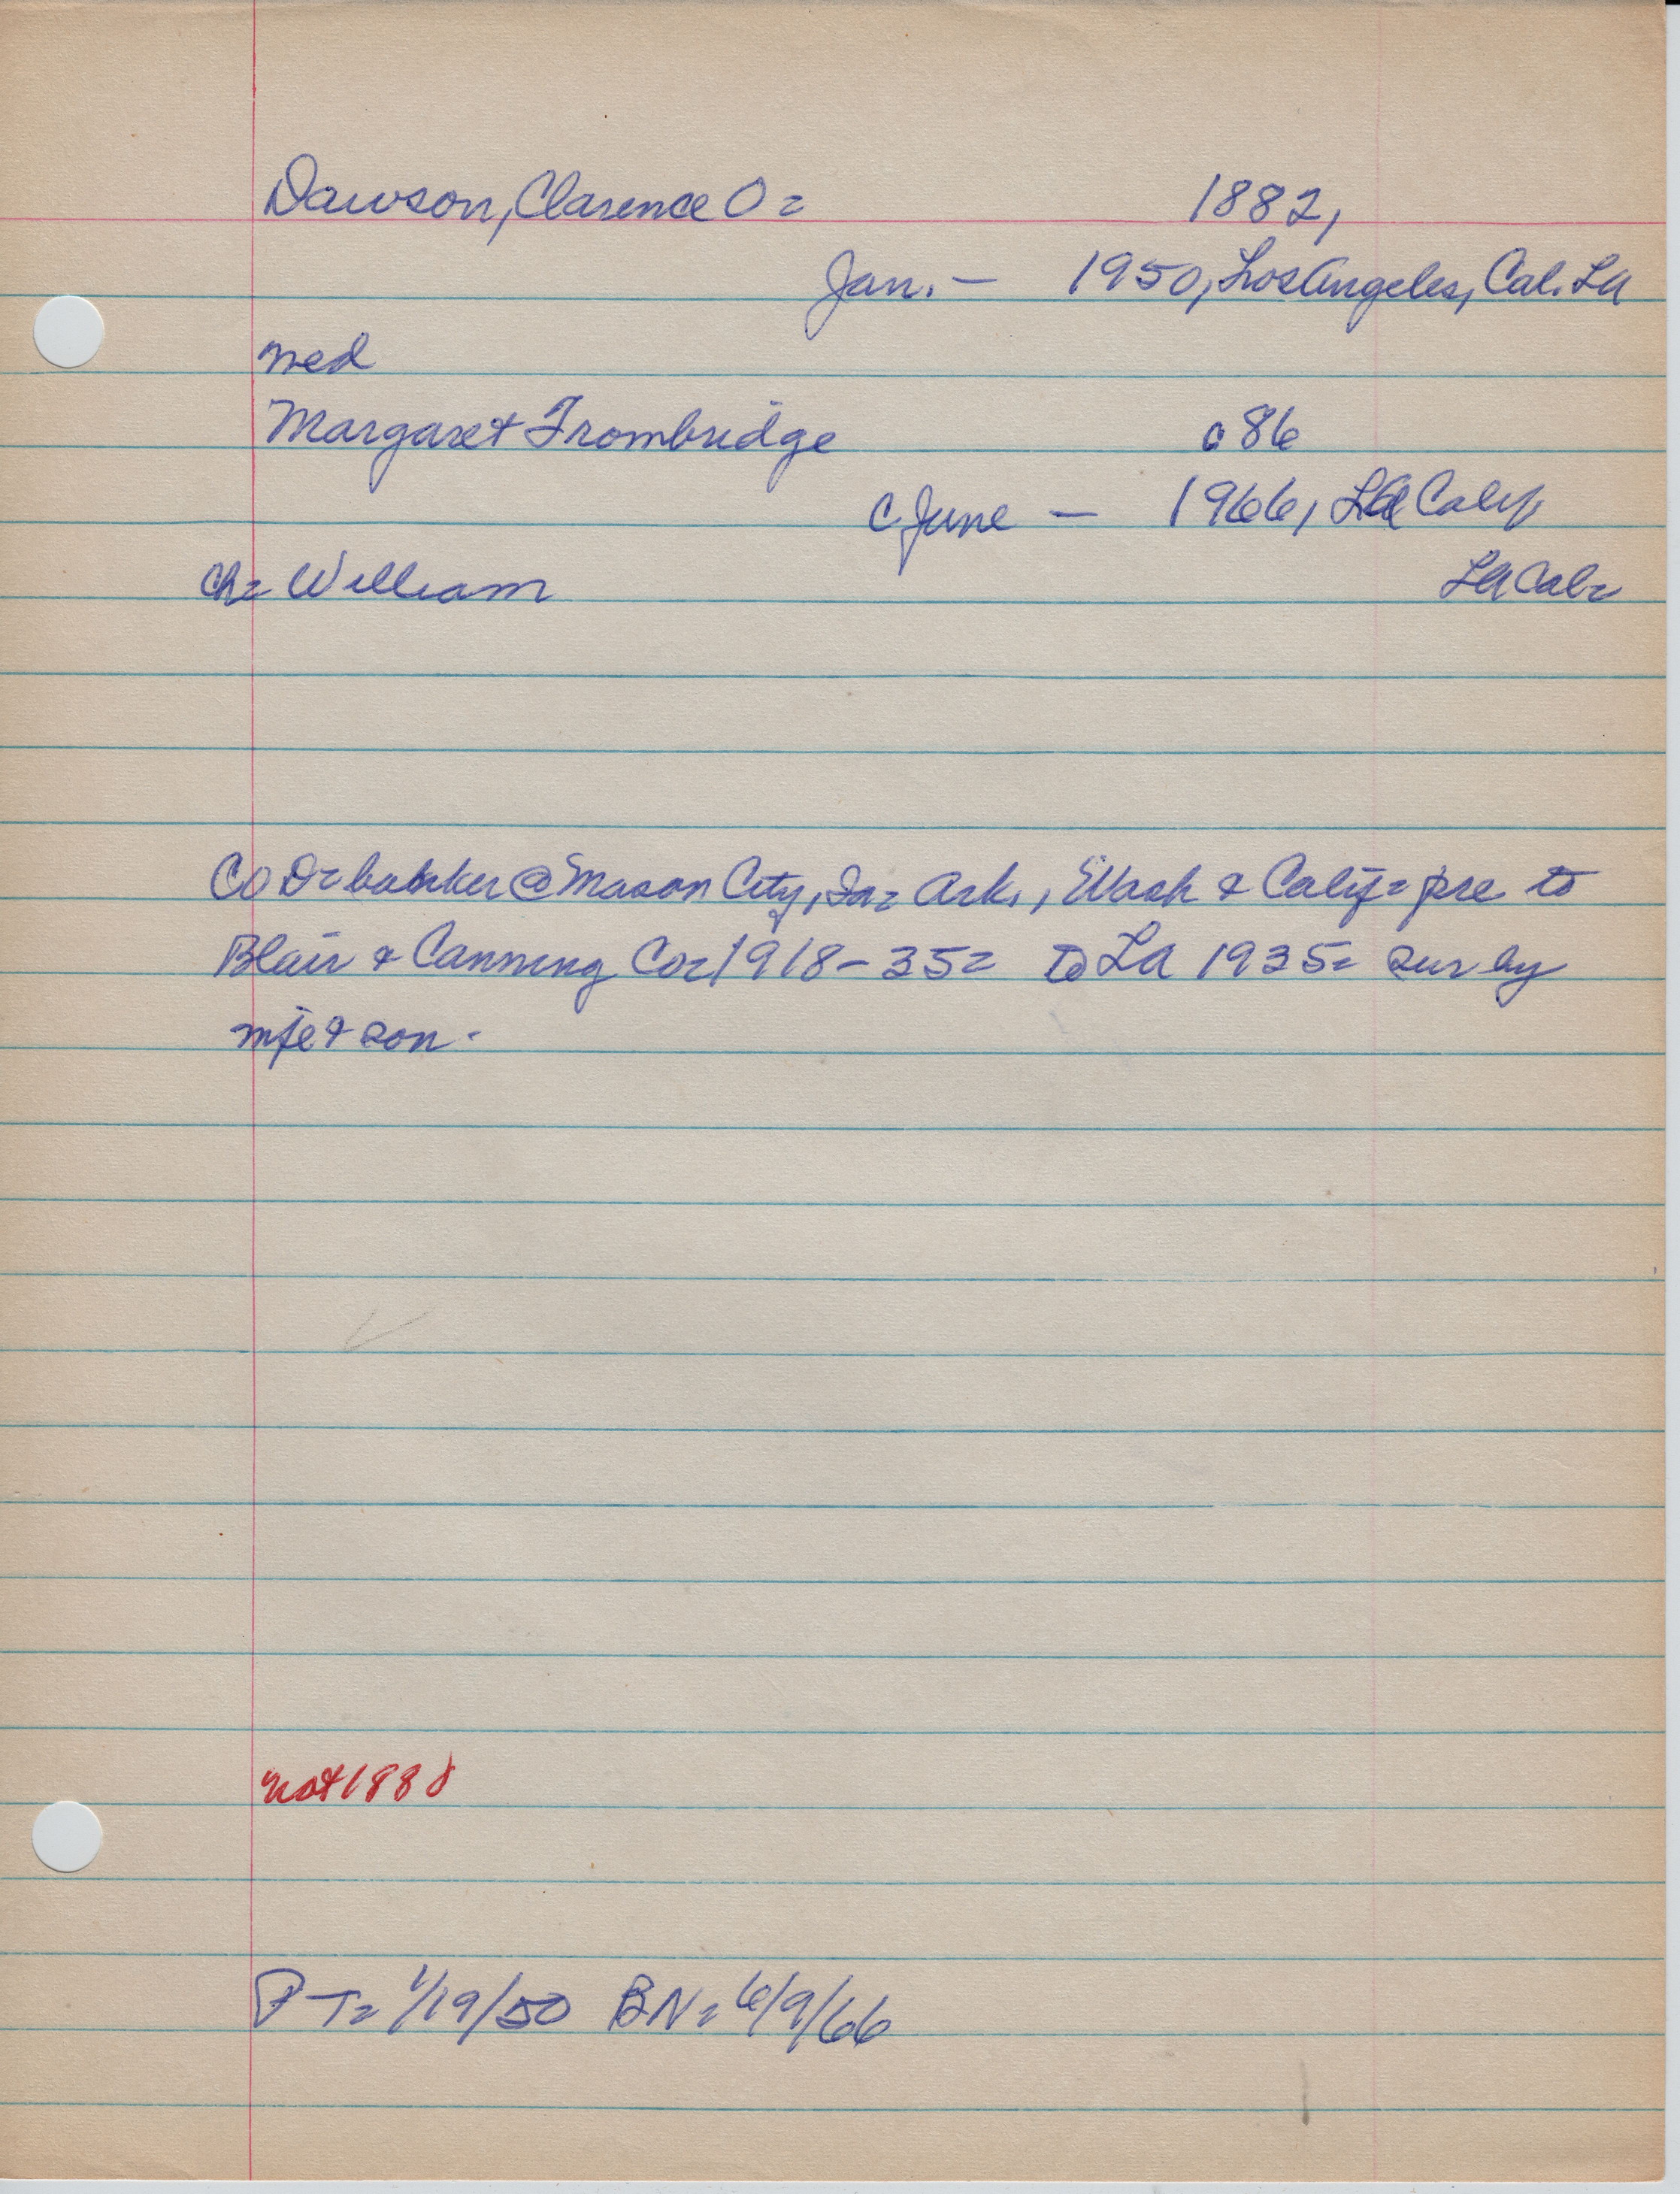 Dawson, Clarence O = 1882,
Jan. — 1950, Los Angeles, Cal. LA
wed
Margaret Trombridge c 86
c June — 1966, LA Calif
ch = William LA Cal =
CO D = banker @ Mason City, Ia = Ark., Wash & Calif = pre to
Blair & Canning Co = 1918-35 = to LA 1935 = sur by
wife & son.
not 1888
PT = 1/19/50 BN = 6/9/66